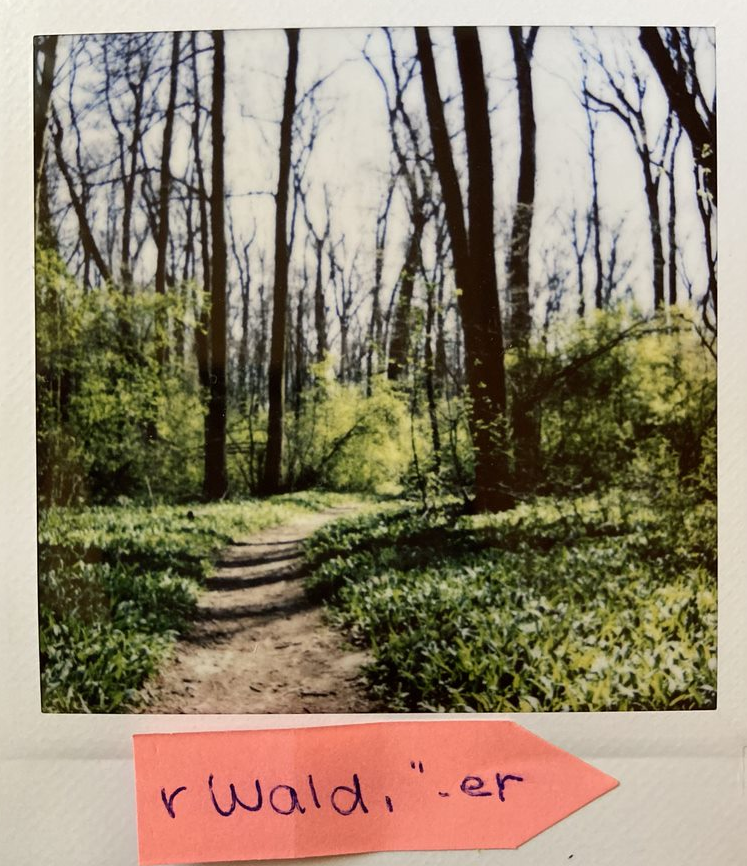 r Wald, ¨-er